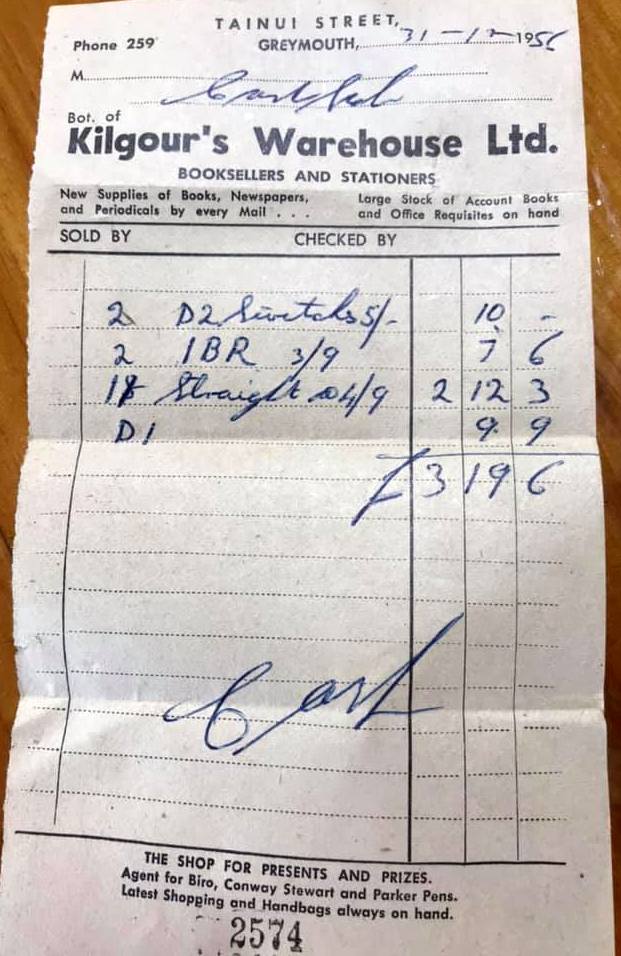 TAINUI STREET,
Phone 259 GREYMOUTH, 31-12-1956
M
Bot. of
Kilgour's Warehouse Ltd.
BOOKSELLERS AND STATIONERS
New Supplies of Books, Newspapers, Large Stock of Account Books
and Periodicals by every Mail . . . and Office Requisites on hand
SOLD BY CHECKED BY
2 D2 Switchs 5/- 10 -
2 1BR 3/9 7 6
Straight @ 4/9 2 12 3
D1 9 9
£ 3 19 6
Cash
THE SHOP FOR PRESENTS AND PRIZES.
Agent for Biro, Conway Stewart and Parker Pens.
Latest Shopping and Handbags always on hand.
2574